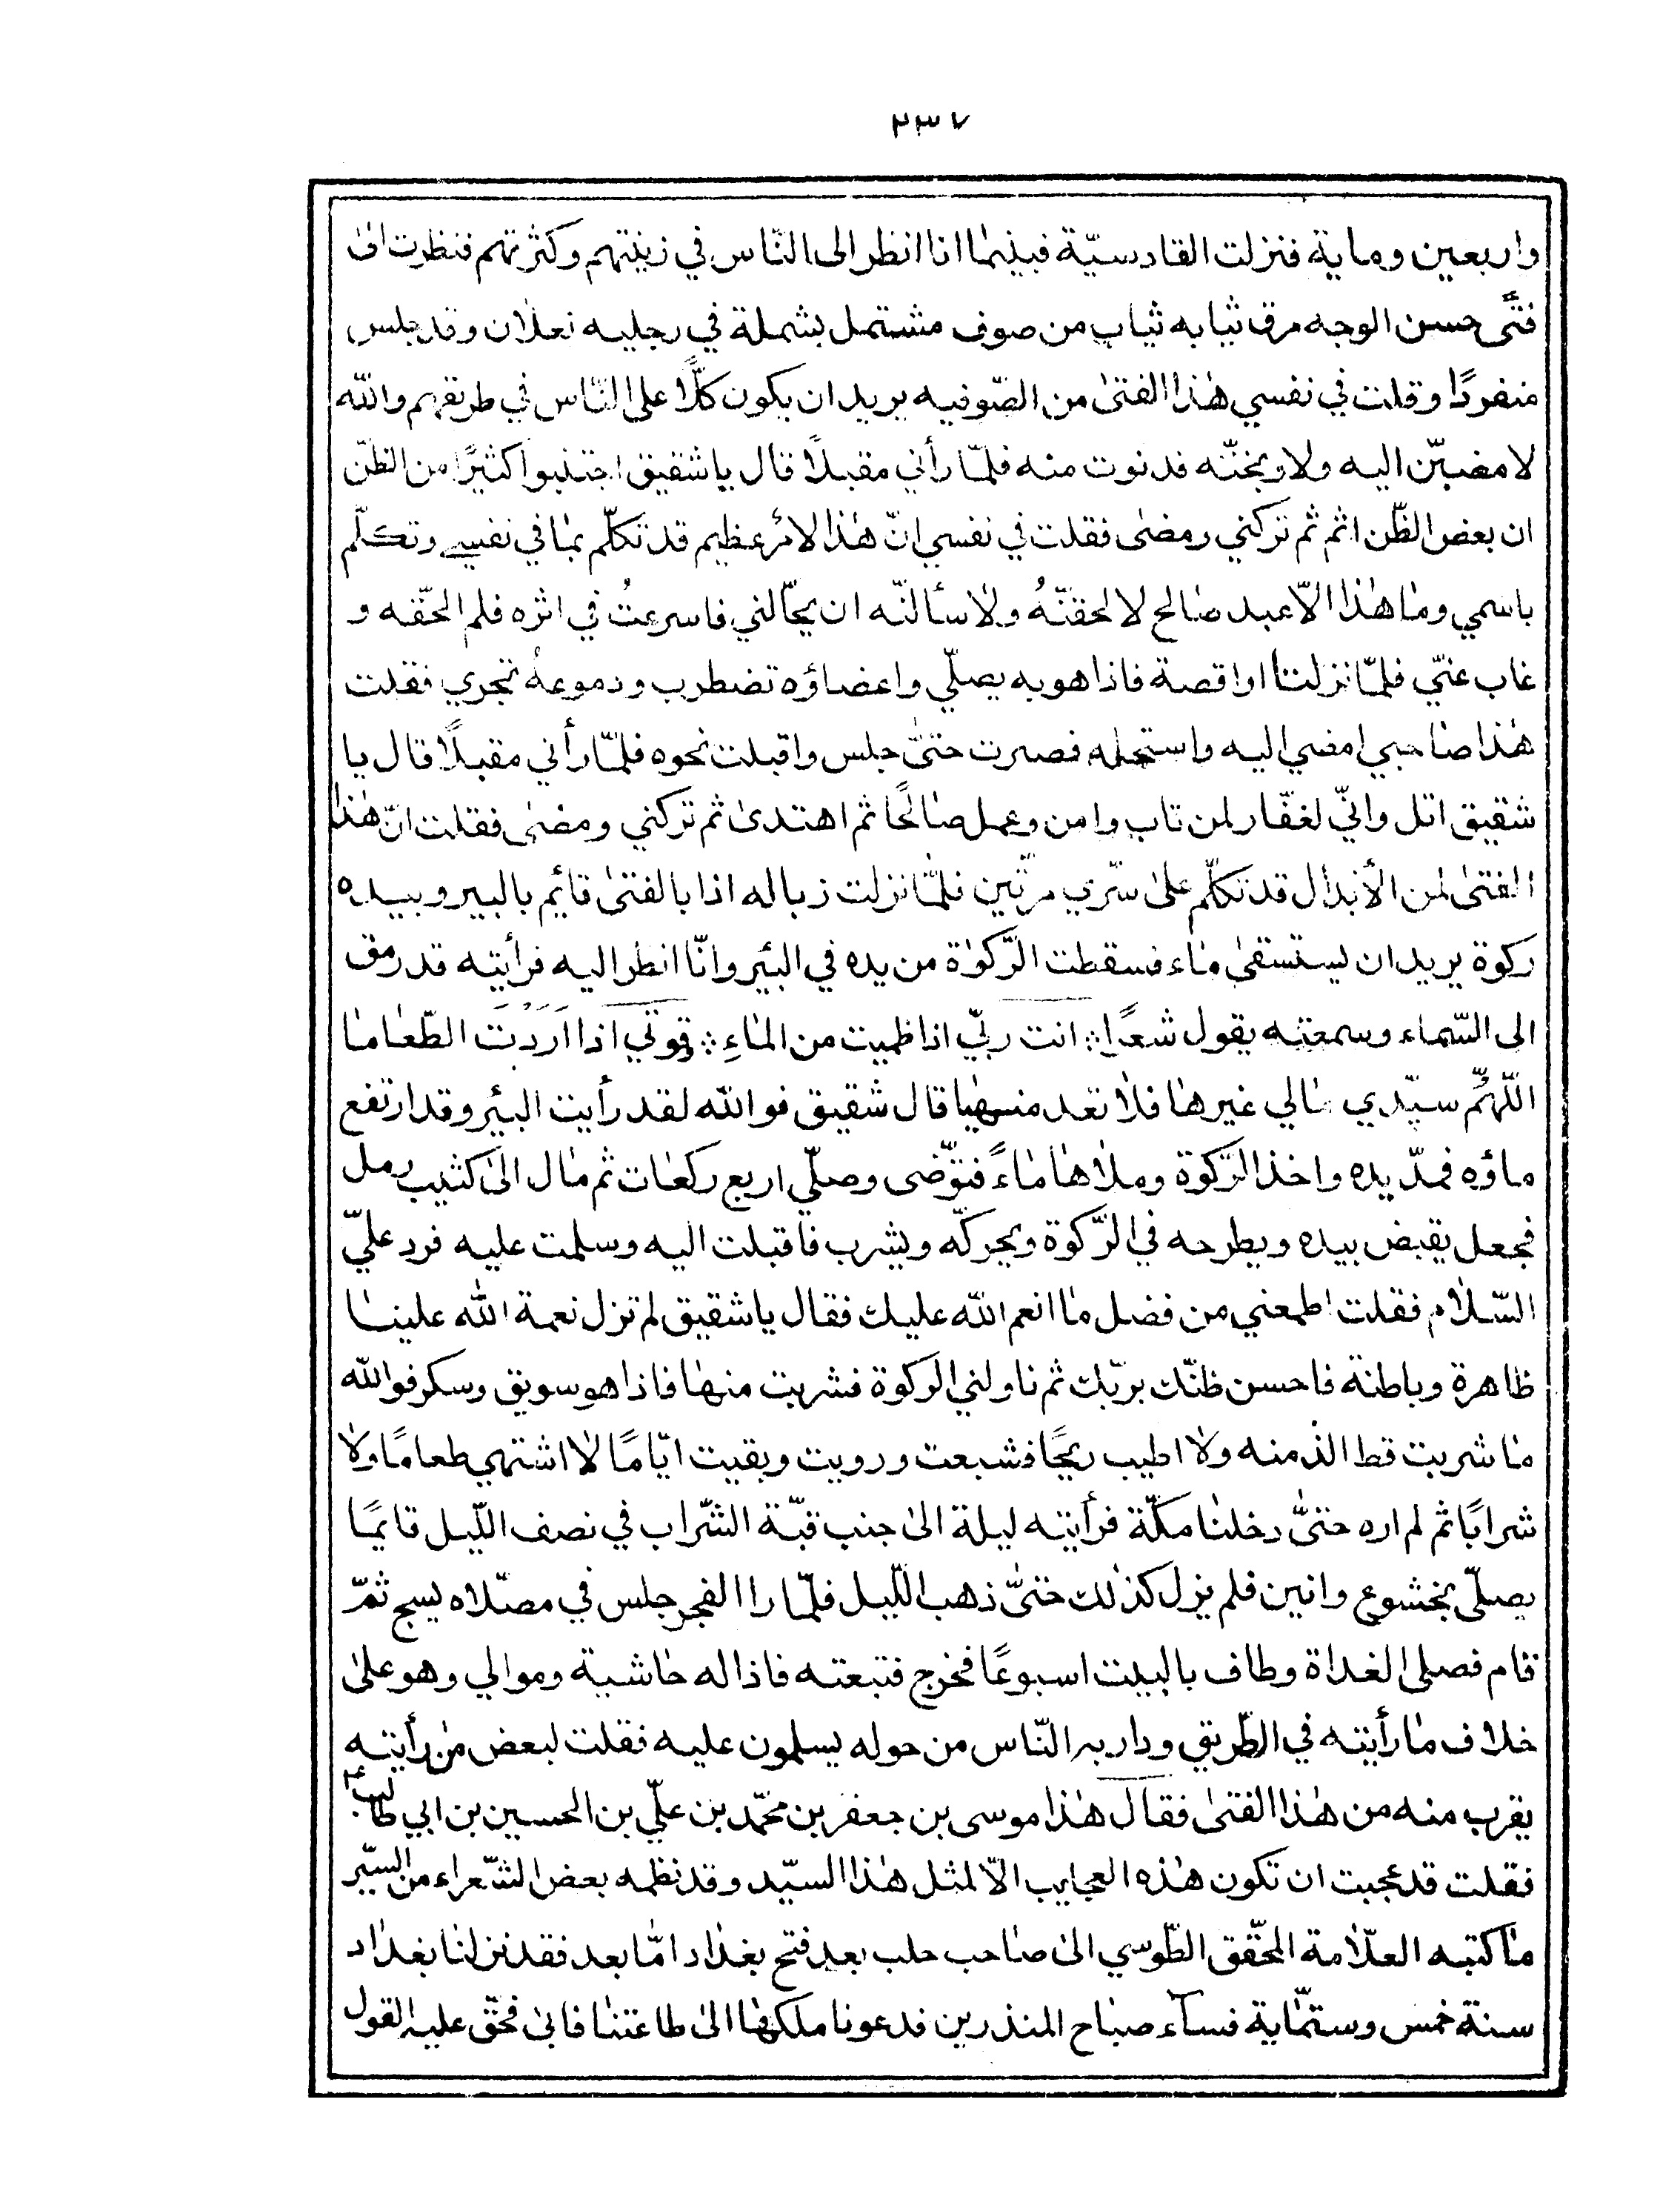 ٢٣٧
واربعين وماية فنزلت القادسيّة فبينما انا انظر الى النّاس في زينتهم وكثرتهم فنظرت الى
فتًى حسن الوجه فوق ثيابه ثياب من صوف مشتمل بشملة في رجليه نعلان وقد جلس
منفردًا وقلت في نفسي هذا الفتى من الصّوفيه يريد ان يكون كلًّا على النّاس في طريقهم والله
لامضينّ اليه ولاوبخنّه فدنوت منه فلمّا رأني مقبلًا قال يا شقيق اجتنبوا كثيرًا من الظنّ
ان بعض الظّن اثم ثم تركني ومضى فقلت في نفسي انّ هذا لامر عظيم قد تكلّم بما في نفسي وتكلّم
باسمي وما هذا الّا عبد صالح لالحقنّهُ ولاسألنّه ان يحاللني فاسرعتُ في اثره فلم الحقه و
غاب عنّي فلمّا نزلنا واقصة فاذا هو به يصلّي واعضاؤه تضطرب ودموعهُ تجري فقلت
هذا صاحبي امضي اليه واستحله فصبرت حتىّ جلس واقبلت نحوه فلمّا رأني مقبلًا قال يا
شقيق اتل وانيّ لغفّار لمن تاب وامن وعمل صالحًا ثم اهتدى ثم تركني ومضى فقلت انّ هذا
الفتى لمن الأبدال قد تكلّم على سّري مرّتين فلمّا نزلت زباله اذا بالفتى قائم بالبير وبيده
ركوة يريد ان يستسقى ماء فسقطت الرّكوة من يده في البئر وانّا انظر اليه فرأيته قد رمق
الى السّماء وسمعته يقول شعرًا انت ربيّ اذا ظميت من الماءِ قوتي اذا اَرَدْتَ الطّعاما
اللّهُمَّ سيّدي مالي غيرها فلا تعدمنيها قال شقيق فوالله لقد رأيت البئر وقد ارتفع
ماؤه فمدّ يده واخذ الرّكوة وملاها ماءً فتوّضى وصلّي اربع ركعات ثم مال الى كثيب رمل
فجعل يقبض بيده ويطرحه في الرّكوة ويحركّه ويشرب فاقبلت اليه وسلمت عليه فرد علىّ
السّلام فقلت اطعمني من فضل ما انعم الله عليك فقال يا شقيق لم تزل نعمة الله علينا
ظاهرة وباطنة فاحسن ظنّك بربّك ثم ناولني الركوة فشربت منها فاذا هو سويق وسكر فوالله
ما شربت قط الذ منه ولا اطيب ريحًا فشبعت ورويت وبقيت ايّامًا لا اشتهي طعامًا ولا
شرابًا ثم لم اره حتىّ دخلنا مكّة فرأيته ليلة الى جنب قبّة الشّراب في نصف اللّيل قايمًا
يصلّى بخشوع وانين فلم يزل كذلك حتىّ ذهب اللّيل فلمّا را الفجر جلس في مصلّاه يسبح ثمّ
قام فصلى الغداة وطاف بالبيت اسبوعًا فخرج فتبعته فاذا له حاشية وموالي وهو على
خلاف ما رأيته في الطّريق ودار به النّاس من حوله يسلمون عليه فقلت لبعض من رأيته
يقرب منه من هذا الفتى فقال هذا موسى بن جعفر بن محمّد بن علّي بن الحسين بن ابي طالب
فقلت قد عجبت ان تكون هذه العجايب الّا لمثل هذا السيّد وقد نظمه بعض الشّعراء من السيّر
ما كتبه العلّامة المحّقق الطّوسي الى صاحب حلب بعد فتح بغداد امّا بعد فقد نزلنا بغداد
سنة خمس وستمّاية فسآء صباح المنذرين فدعونا ملكها الى طاعتنا فابى فحّق عليه القول